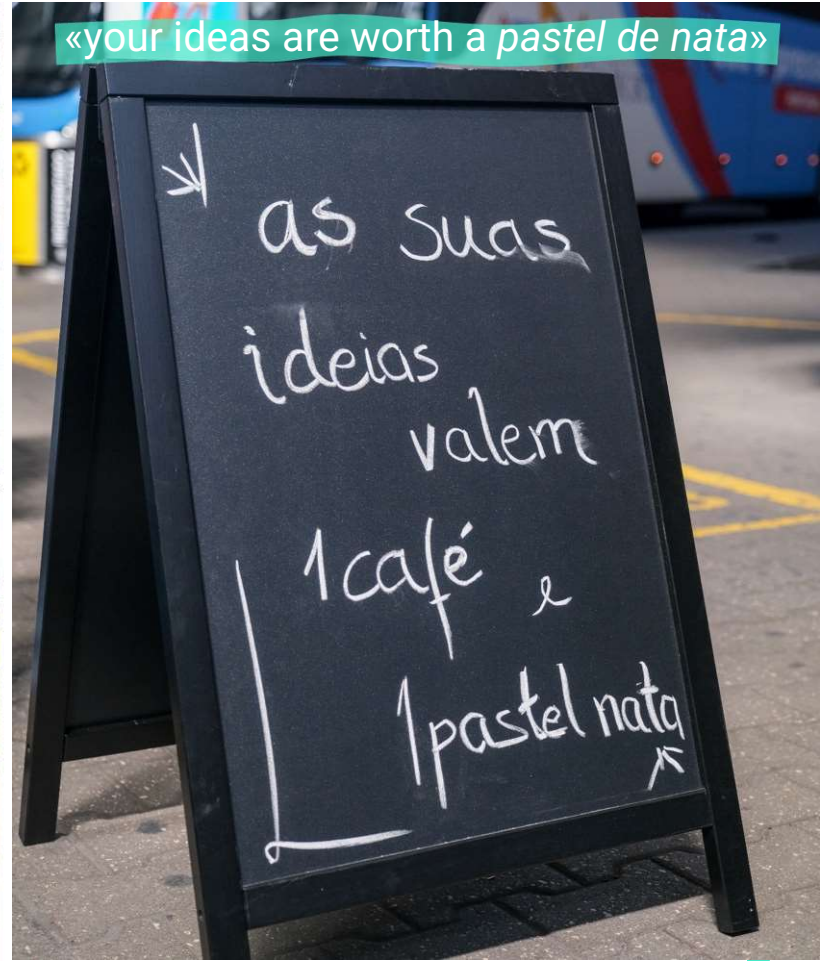 «your ideas are worth a pastel de nata»
as suas
ideias
valem
1 café e
1 pastel nata